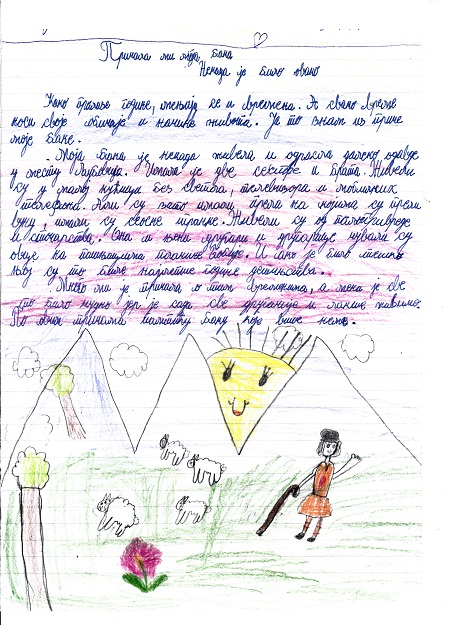 Причала ми моја бака
Некада је било овако
Како пролазе године, мењају се и времена. А свако време
носи своје обичаје и начине живота. Ја то знам из приче
моје баке.
Моја бака је некада живела и одрасла далеко одавде
у месту Љубовија. Имала је две сестре и брата. Живели
су у малој кућици без светла, телевизора и мобилних
телефона. Али су зато имали прела на којима су прели
вуну, имали су сеоске игранке. Живели су од пољопривреде
и сточарства. Она и њени другари и другарице чували су
овце на пашњацима планине И ако је било тешко
њој су то биле најлепше године детињства.
Много ми је причала о тим временима, а мени је све
то било чудно јер је сада све другачије и лакше живимо.
По овим причама памтићу баку које више нема.